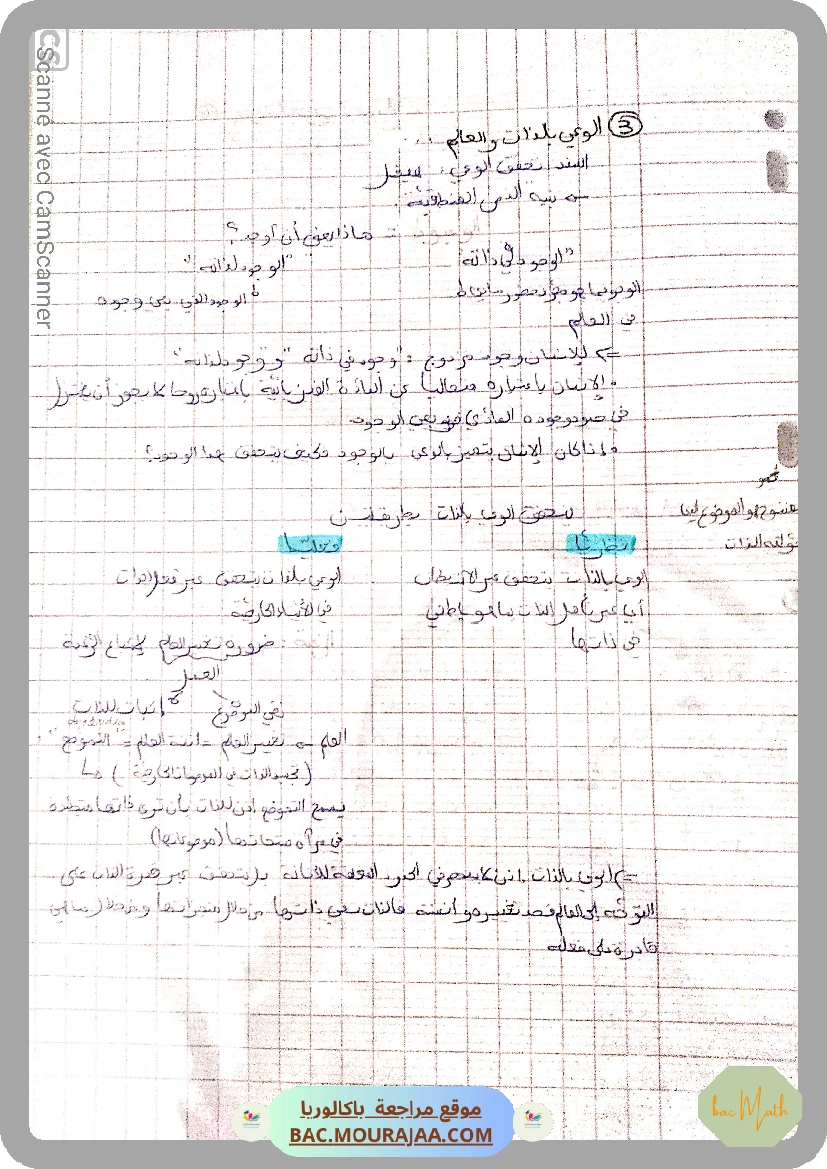 ③ الوعي بالذات والعالم ...
السند: تحقق الوعي، هيغل
بنية الدرس المنطقية:
ماذا يعني أن أوجد؟
"الوجود في ذاته" "الوجود لذاته"
الوجود بما هو مجرد حضور مادي الوجود الذي يعي وجوده
في العالم
=> للإنسان وجود مزدوج: "وجود في ذاته" و "وجود لذاته"
الإنسان باعتباره متعاليا عن المادة الفيزيائية باعتباره روحا لا يجوز أن يختزل
في حدود وجوده المادي فهو يعي الوجود
لذا كان الإنسان يتميز بالوعي بالوجود فكيف يتحقق هذا الوجود؟
يتحقق الوعي بالذات بطريقتين
نظريا عمليا
الوعي بالذات يتحقق عبر الاستبطان الوعي بالذات يتحقق عبر فعل الذات
أي عبر تأمل الذات ما هو باطني في الأشياء الخارجية
في ذاتها ضرورة تغيير العالم
العمل
إثبات للذات
العالم تغيير العالم = أنسنة العالم = "التموضع"
(تجسيد الذات في الموضوعات الخارجية)
يسمح التموضع إذن للذات بأن ترى ذاتها متجسدة
في مرآة منتجاتها (موضوعاتها)
=> الوعي بالذات إذن لا ينحصر في الحدود الضيقة للأنا بل يتحقق عبر قدرة الذات على
التوجه إلى العالم قصد تغييره وأنسنته فالذات تعي ذاتها من خلال منجزاتها ومن خلال ما هي
قادرة على فعله
Scanné avec CamScanner
CS
bac Math
موقع مراجعة باكالوريا
BAC.MOURAJAA.COM